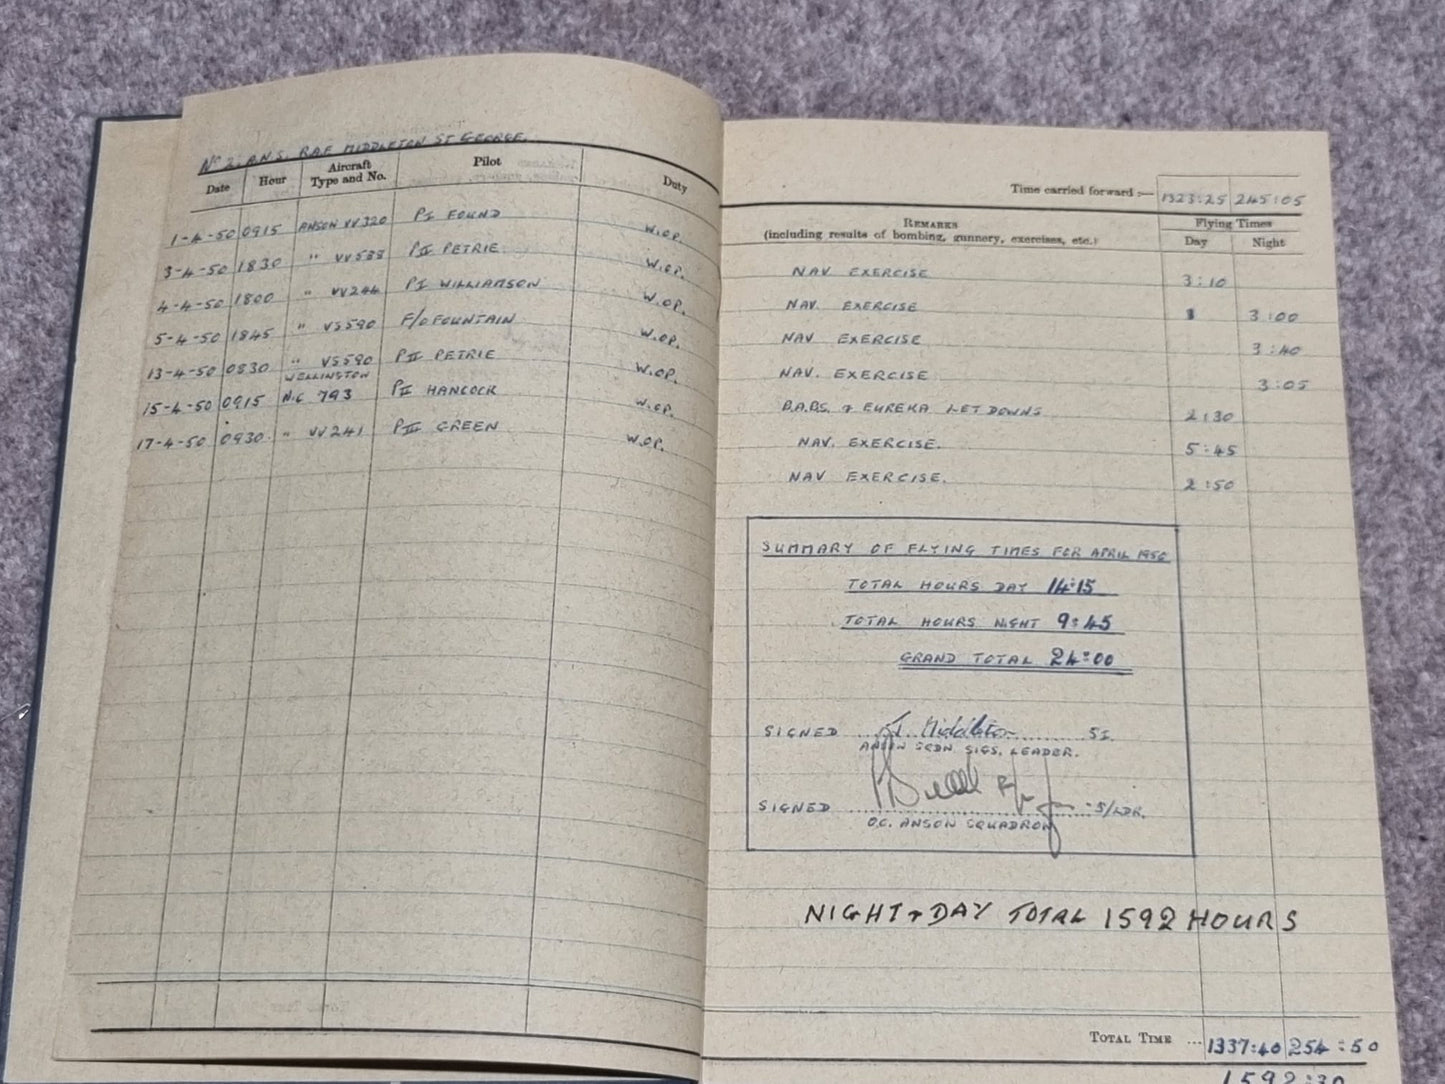 No 2. A.N.S. RAF MIDDLETON ST GEORGE.
Date Hour Aircraft Type and No. Pilot Duty
1-4-50 0915 ANSON VV320 PI FOUND W.OP.
3-4-50 1830 " VV538 PII PETRIE W.OP.
4-4-50 1800 " VV244 PI WILLIAMSON W.OP.
5-4-50 1845 " VS590 F/O FOUNTAIN W.OP.
13-4-50 0830 " VS590 PII PETRIE W.OP.
WELLINGTON
15-4-50 0915 N.C 793 PII HANCOCK W.OP.
17-4-50 0930 " VV241 PIII GREEN W.OP.
Time carried forward :— 1323:25 245:05
REMARKS Flying Times
(including results of bombing, gunnery, exercises, etc.) Day Night
NAV EXERCISE 3:10
NAV. EXERCISE 3:00
NAV EXERCISE 3:40
NAV. EXERCISE 3:05
B.A.B.S. & EUREKA LET DOWNS 2:30
NAV. EXERCISE. 5:45
NAV EXERCISE. 2:50
SUMMARY OF FLYING TIMES FOR APRIL 1950
TOTAL HOURS DAY 14:15
TOTAL HOURS NIGHT 9:45
GRAND TOTAL 24:00
SIGNED Middleton SI.
ANSON SQDN. SIGS. LEADER.
SIGNED S/LDR.
O.C. ANSON SQUADRON
NIGHT & DAY TOTAL 1592 HOURS
TOTAL TIME ... 1337:40 254:50
1592:30